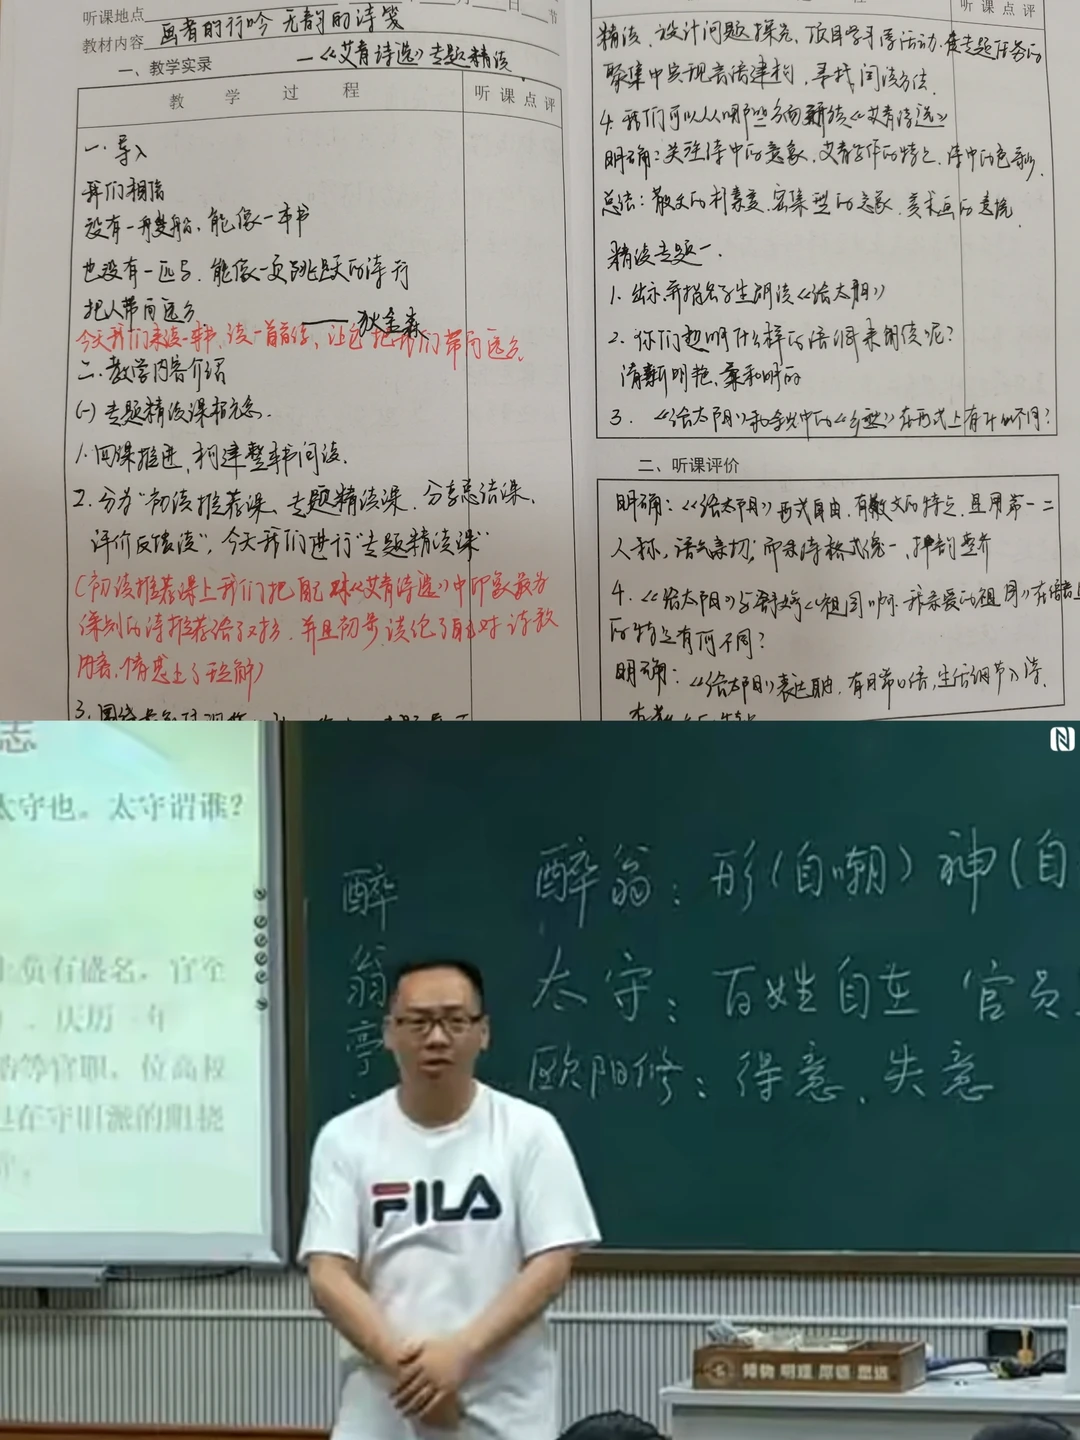 听课地点
日
节
教材内容 画者的行吟 无韵的诗笺
一、教学实录
—《艾青诗选》专题精读
教 学 过 程
听课点评
一、导入
我们相信
没有一艘船,能像一本书
也没有一匹马,能像一页跳跃的诗行
把人带向远方
——狄金森
今天我们来读一本书,读一首首诗,让它把我们带向远方
二、教学内容介绍
(一)专题精读课概念.
1.四课推进,构建整书阅读.
2.分为"初读推荐课、专题精读课、分享总结课、
评价反馈课",今天我们进行"专题精读课"
(初读推荐课上我们把自己对《艾青诗选》中印象最为
深刻的诗推荐给了对方,并且初步谈论了自己对诗歌
内容、情感上的理解)
听课点评
精读、设计问题探究、项目学习等活动,使专题任务的
聚集中实现言语建构,寻找阅读方法.
4.我们可以从哪些方面解读《艾青诗选》
明确:关注诗中的意象,艾青写作的特色,诗中的色彩.
总结:散文的朴素美、密集型的意象、美术画的意境.
精读专题一.
1.出示并指名学生朗读《给太阳》
2.你们想用什么样的语调来朗读呢?
清新明艳、柔和明亮
3.《给太阳》和余光中的《乡愁》在形式上有什么不同?
二、听课评价
明确:《给太阳》形式自由,有散文的特点,且用第一二
人称,语气亲切;而余诗格式统一,押韵整齐
4.《给太阳》与舒婷《祖国啊,我亲爱的祖国》在语言上
的特点有何不同?
明确:《给太阳》表达自由,有日常口语,生活细节入诗.
太守也。太守谓谁?
负有盛名,官至
庆历 年
等官职,位高权
在守旧派的阻挠
醉翁亭
醉翁:形(自嘲)神(自
太守:百姓自在 官员
欧阳修:得意、失意
FILA
博物 明理 厚德 思进